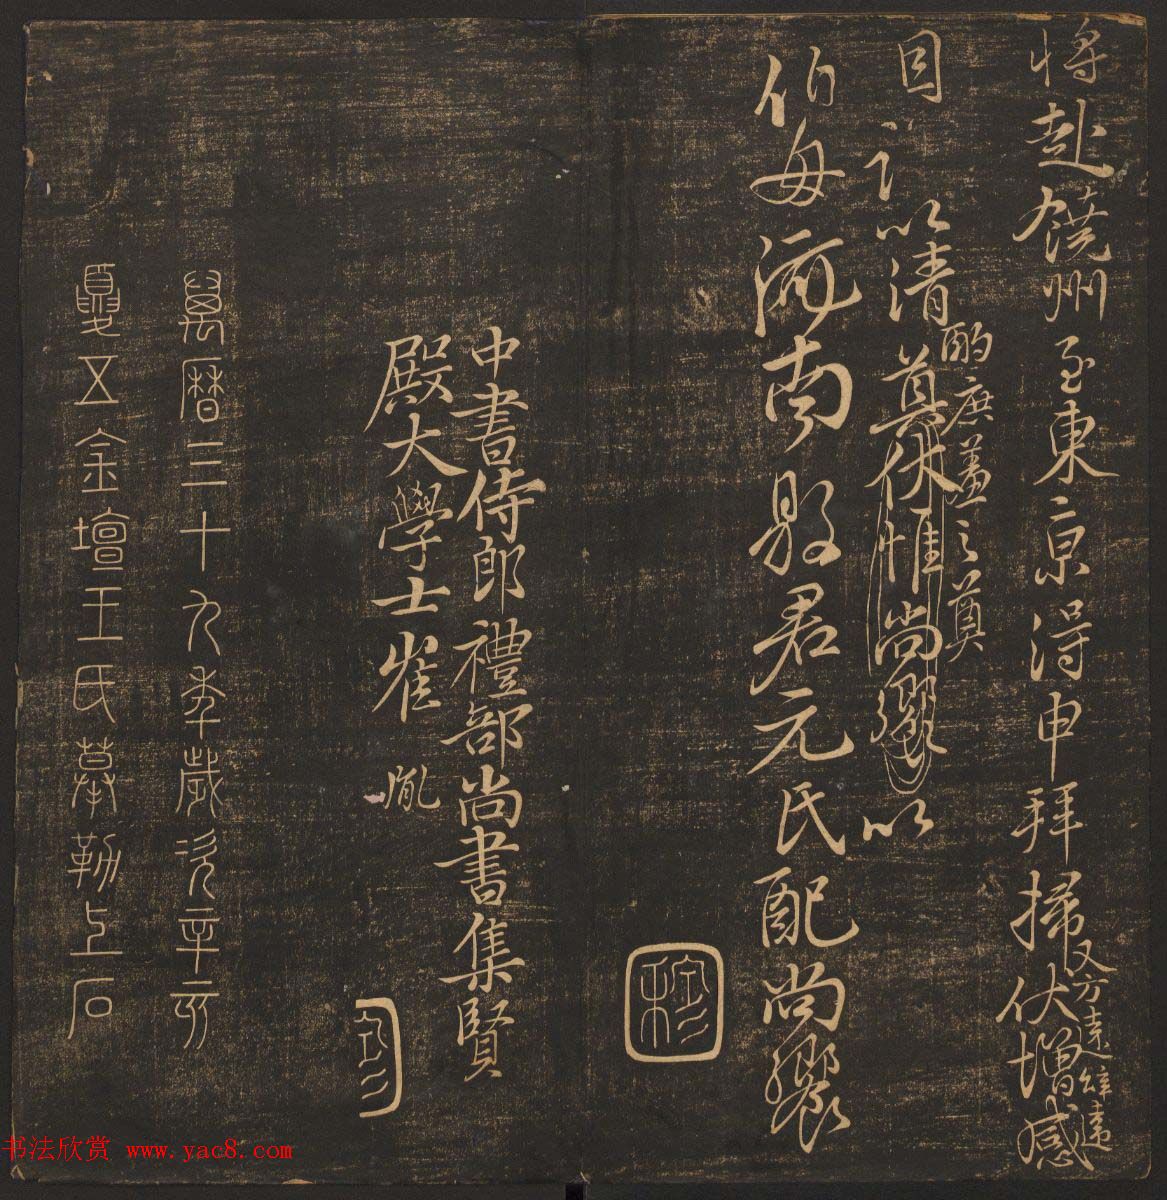 將赴饒州至東京得申拜掃伏增感
又方遠辭違
目以清真伏惟尚饗以
酌庶羞之奠
伯母河南縣君元氏配尚饗
中書侍郎禮部尚書集賢
殿大學士崔胤
萬曆三十九年歲次辛亥
夏五金壇王氏摹勒上石
书法欣赏 www.yac8.com